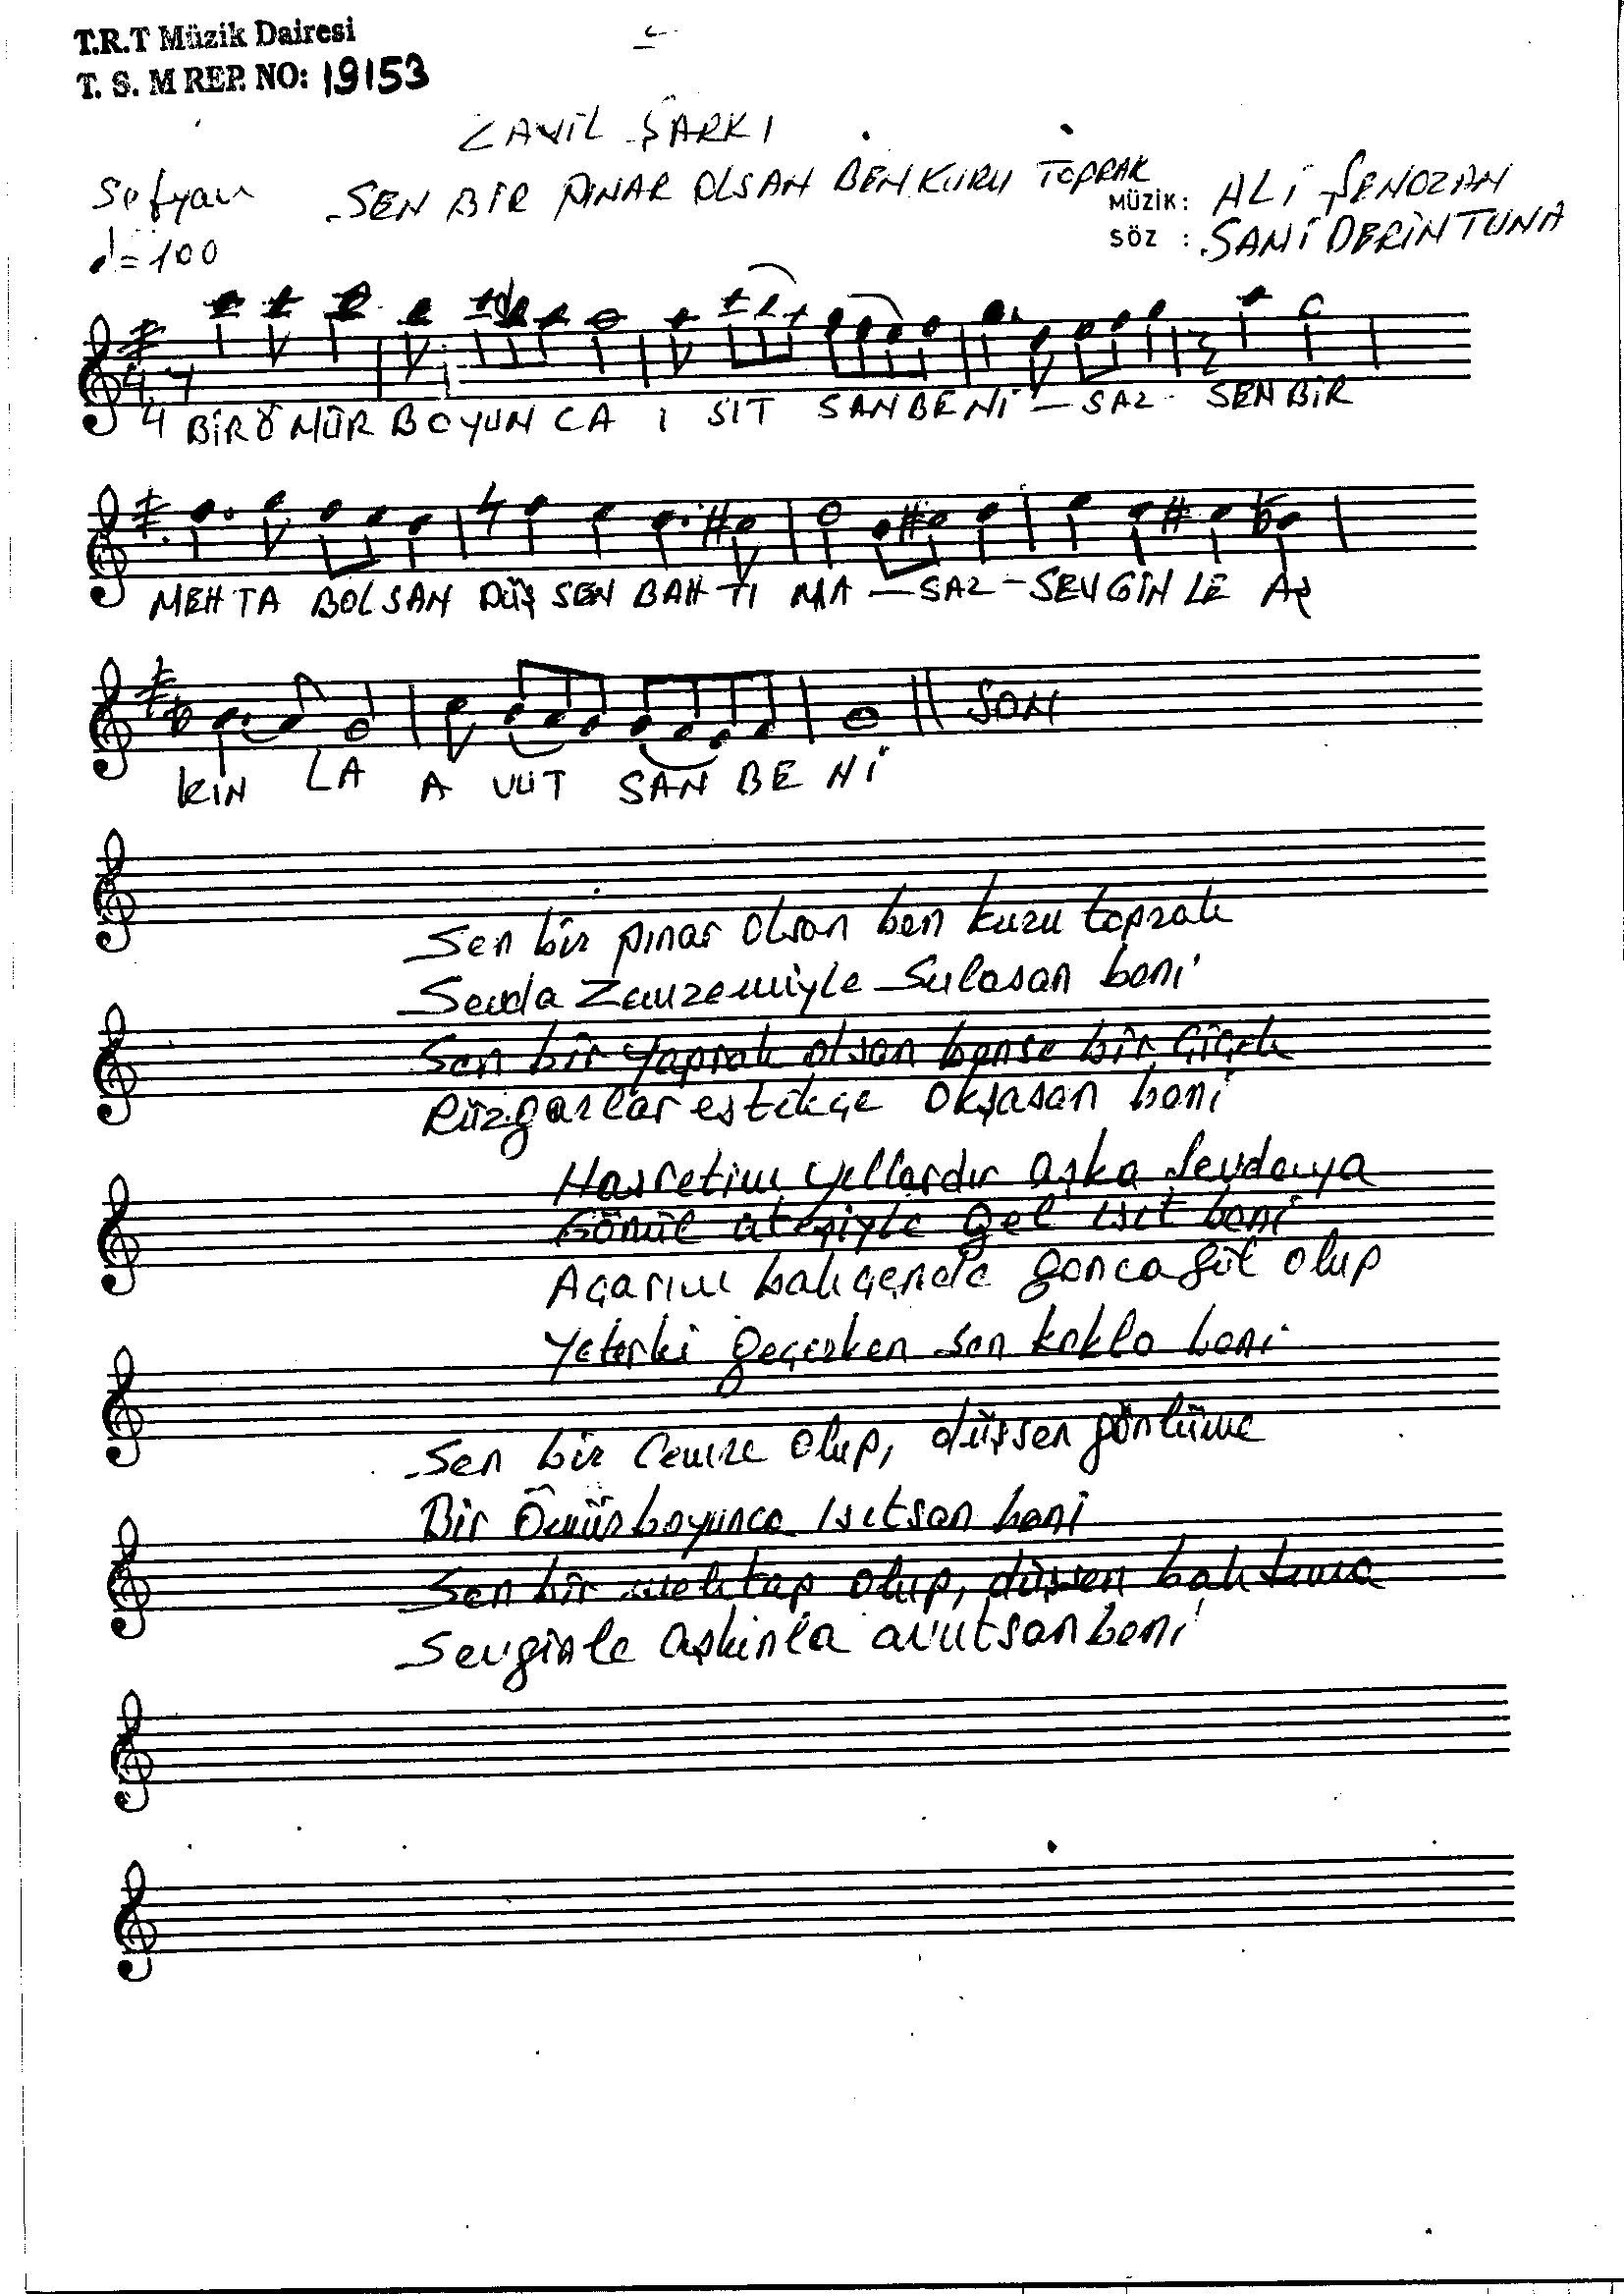 T.R.T Müzik Dairesi
T. S. M REP. NO: 19153
ZAVİL ŞARKI
Sofyan SEN BİR PINAR OLSAN BEN KURU TOPRAK
MÜZİK: ALİ ŞENOZAN
♩=100
SÖZ : SAMİ DERİNTUNA
4
4 BİR ÖMÜR BOYUN CA I SIT SAN BE Nİ — SAZ - SEN BİR
MEH TA BOLSAN DÜŞ SEN BAH TI MA — SAZ — SEV GİN LE AŞ
SON
KIN LA A VUT SAN BE Nİ
Sen bir pınar olsan ben kuru toprak
Sevda Zemzemiyle Sulasan beni
Sen bir yaprak olsan bense bir çiçek
Rüzgarlar estikçe okşasan beni
Hasretim yıllardır aşka sevdaya
Gönül ateşiyle gel ısıt beni
Açarım bahçende gonca gül olup
Yeterki geçerken sen kokla beni
Sen bir Cemre olup, düşsen gönlüme
Bir Ömür boyunca ısıtsan beni
Sen bir mehtap olup, düşsen bahtıma
Sevginle aşkınla avutsan beni